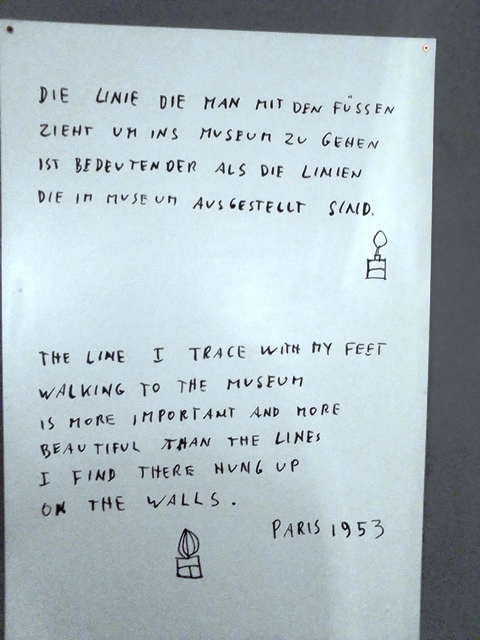 DIE LINIE DIE MAN MIT DEN FÜSSEN
ZIEHT UM INS MUSEUM ZU GEHEN
IST BEDEUTENDER ALS DIE LINIEN
DIE IM MUSEUM AUSGESTELLT SIND.
THE LINE I TRACE WITH MY FEET
WALKING TO THE MUSEUM
IS MORE IMPORTANT AND MORE
BEAUTIFUL THAN THE LINES
I FIND THERE HUNG UP
ON THE WALLS.
PARIS 1953